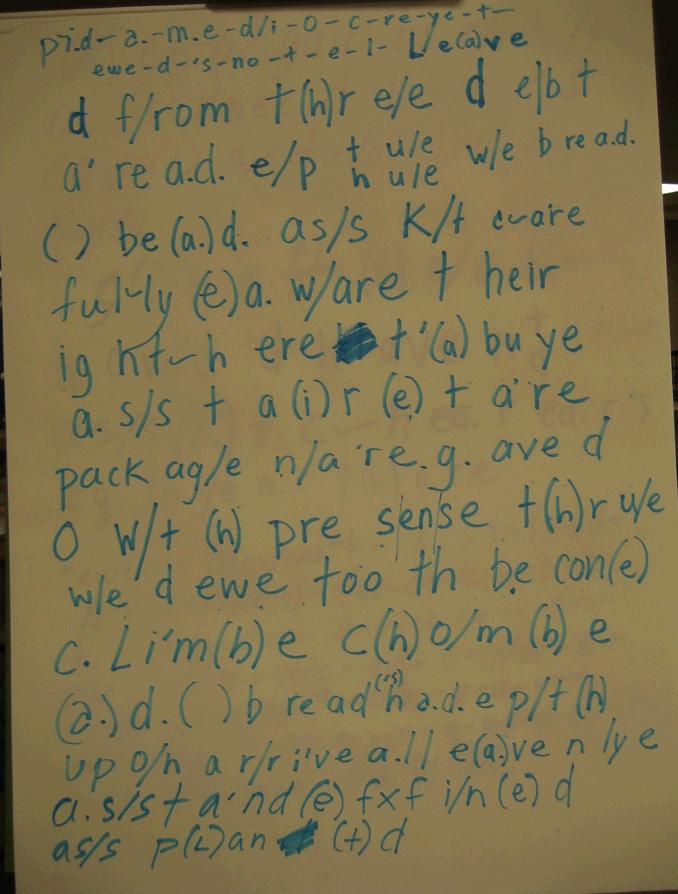 pi.d-a.-m.e-d/i-o-c-re-ye-t-
ewe-d-'s-no-t-e-l- L/e(a)ve
d f/rom t(h)r e/e d e/b t
a' re a.d. e/p t u/e w/e b re a.d.
h u/e
( ) be(a.)d. as/s K/t c-are
ful-ly (e)a. w/are t heir
ig ht-h ere t'(a) bu ye
a. s/s t a(i)r (e) t a're
pack ag/e n/a 're.g. ave d
o w/t (h) pre s/ense t(h)r u/e
w/e d ewe too th be con(e)
c. Li'm(b)e c(h)o/m(b)e
(a.)d.( )b read('s)h a.d. e p/t(h)
up o/n a r/r i've a.l l e(a)ve n ly e
a.s/s t a'nd(e) fxf i/n(e)d
as/s p(L)an (t)d